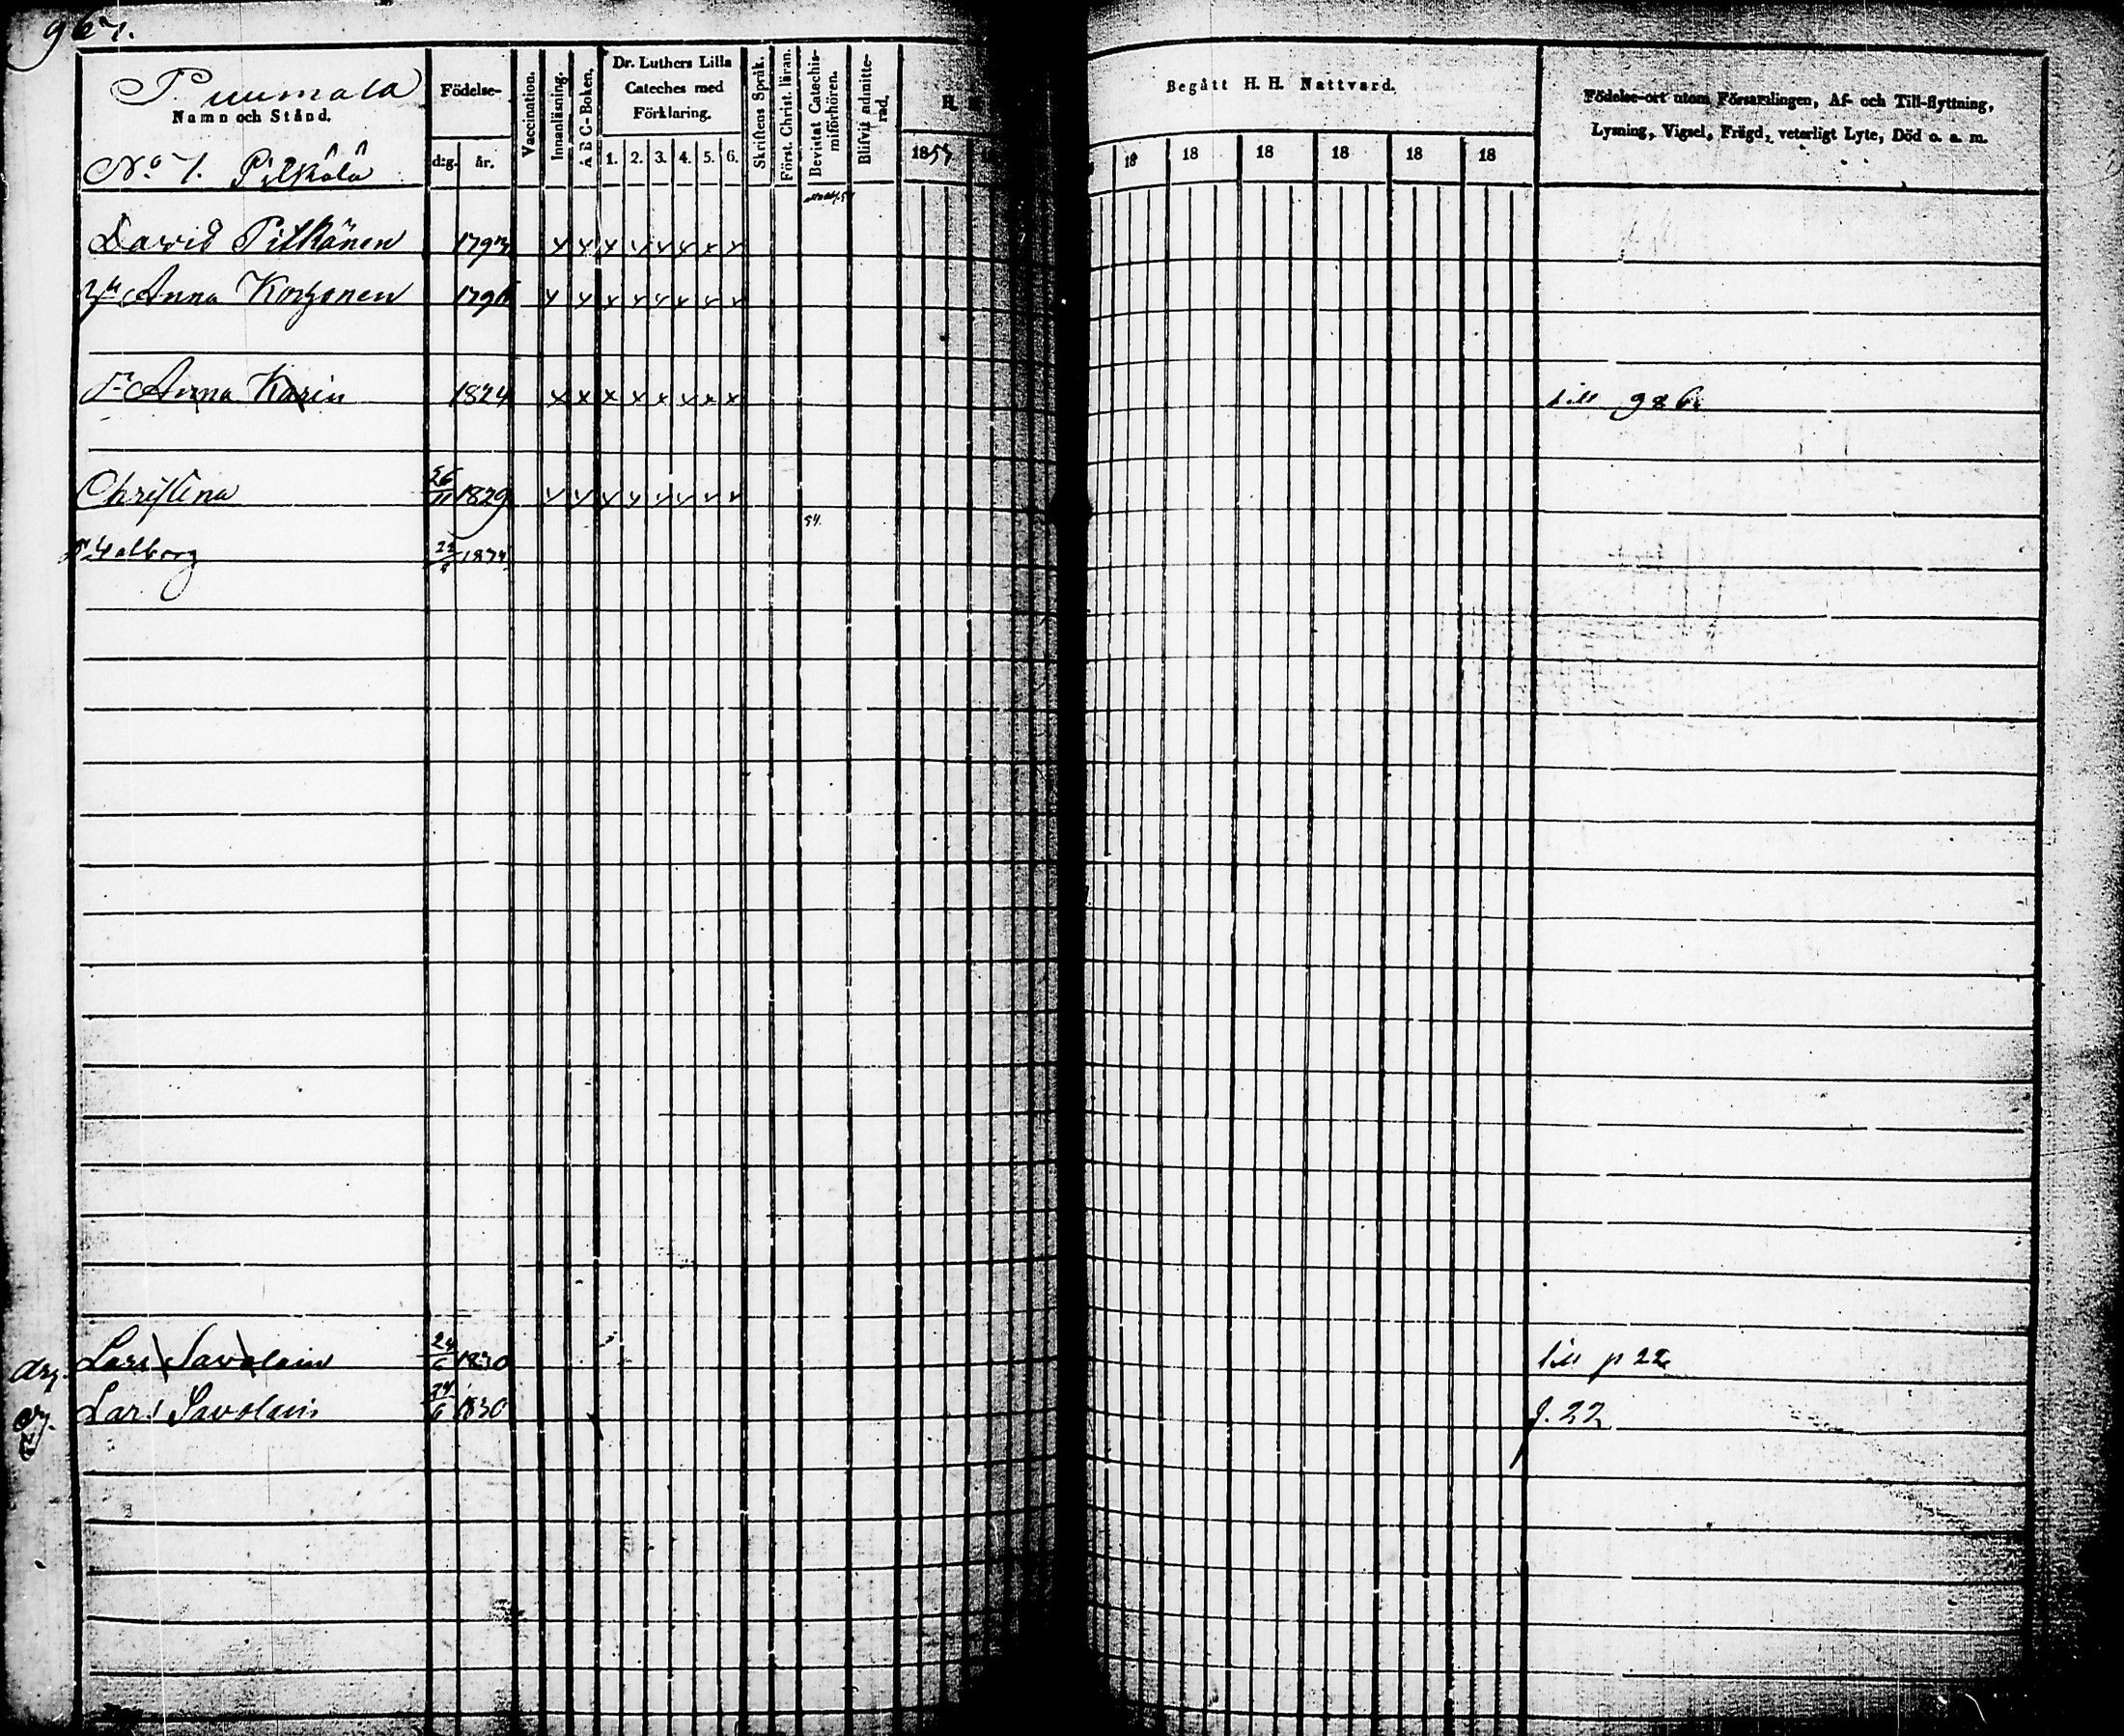 967.
Puumala
Namn och Stånd.
No 7. Pitkälä
Födelse-
d:g. år.
Vaccination.
Innanläsning.
A B C-Boken.
Dr. Luthers Lilla
Cateches med
Förklaring.
1. 2. 3. 4. 5. 6.
Skriftens Språk.
Först. Christ. läran.
Bevistat Catechis-
miförhören.
Blifvit admitte-
rad.
H.
1857
Begått H. H. Nattvard.
18 18 18 18 18 18
Födelse-ort utom Församlingen, Af- och Till-flyttning,
Lysning, Vigsel, Frägd, veterligt Lyte, Död o. s. m.
David Pitkänen 1793 x x x x x x x x
Anna Korhonen 1796 x x x x x x x x
Anna Karin 1824 x x x x x x x x till 986
Christina 26/11 1829 x x x x x x x x
57.
Walborg
Lars Savolain 24/6 1830 till p 22
Lars Savolain 24/6 1830 f. 22